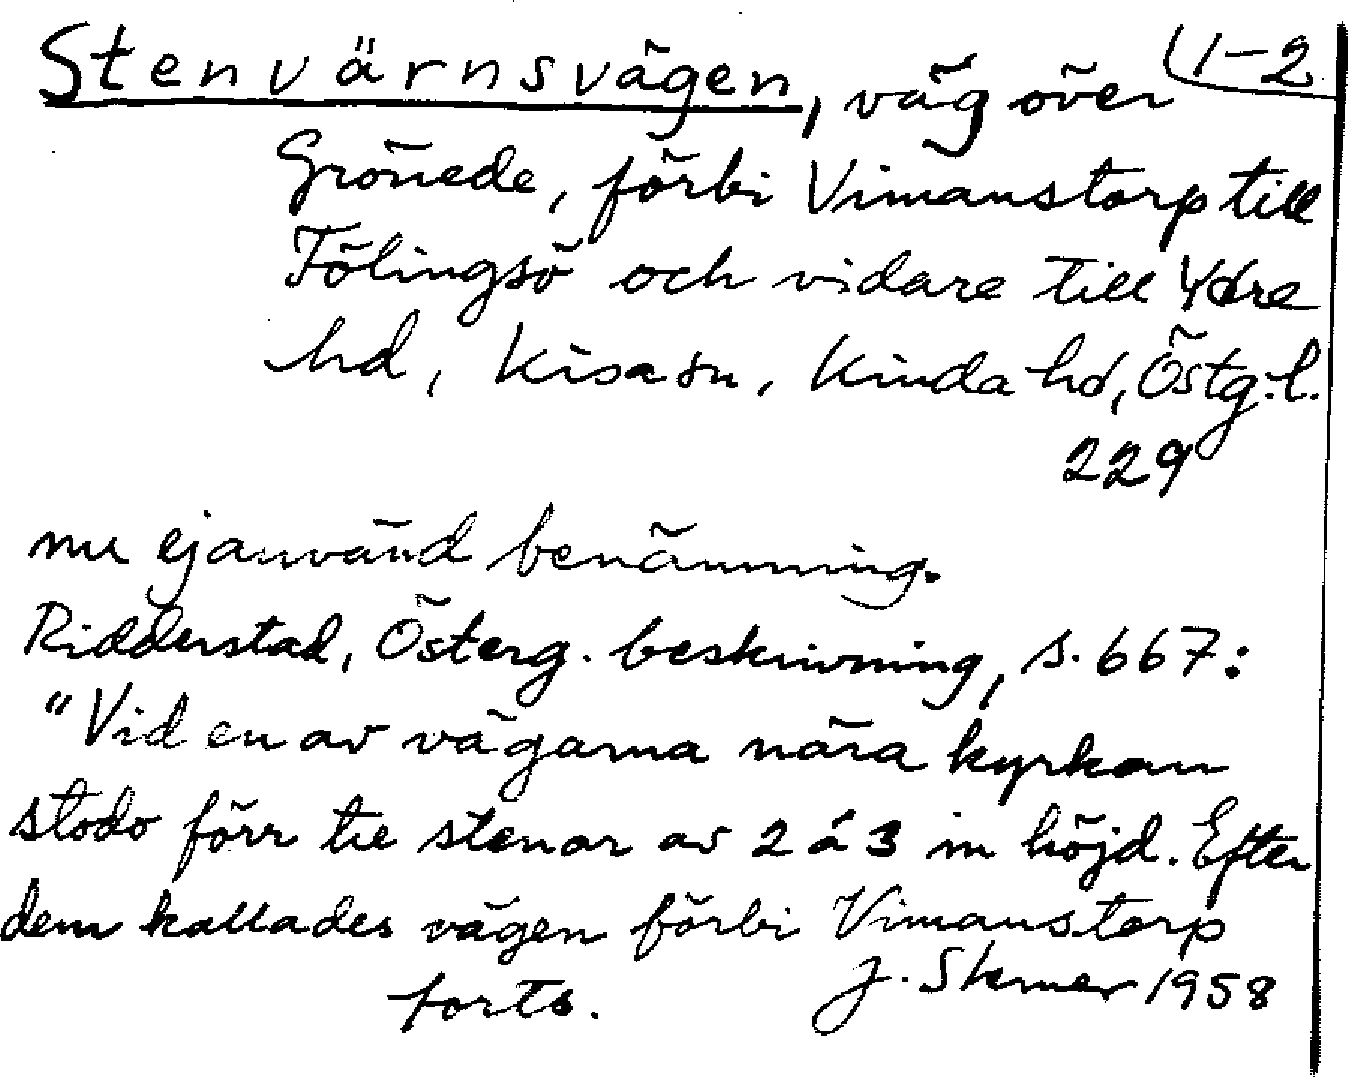 Stenvärnsvägen, väg över 1-2
Grönede, förbi Vimanstorp till
Fölingsö och vidare till Ydre
hd, Kisa sn, Kinda hd, Östg.l.
229
nu ej använd benämning.
Ridderstad, Österg. beskrivning, s. 667:
"Vid en av vägarna nära kyrkan
stodo förr tre stenar av 2 á 3 m höjd. Efter
dem kallades vägen förbi Vimanstorp
forts. J. 1958